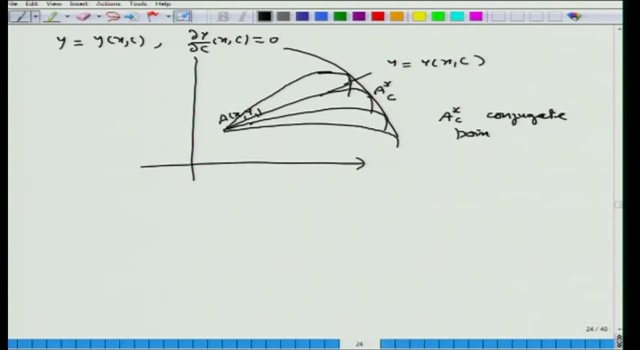 View Insert Actions Tools Help
y = y(x,c), ∂y/∂c (x,c) = 0
y = y(x,c)
A*c
A*c conjugate
poin
24 / 40
24